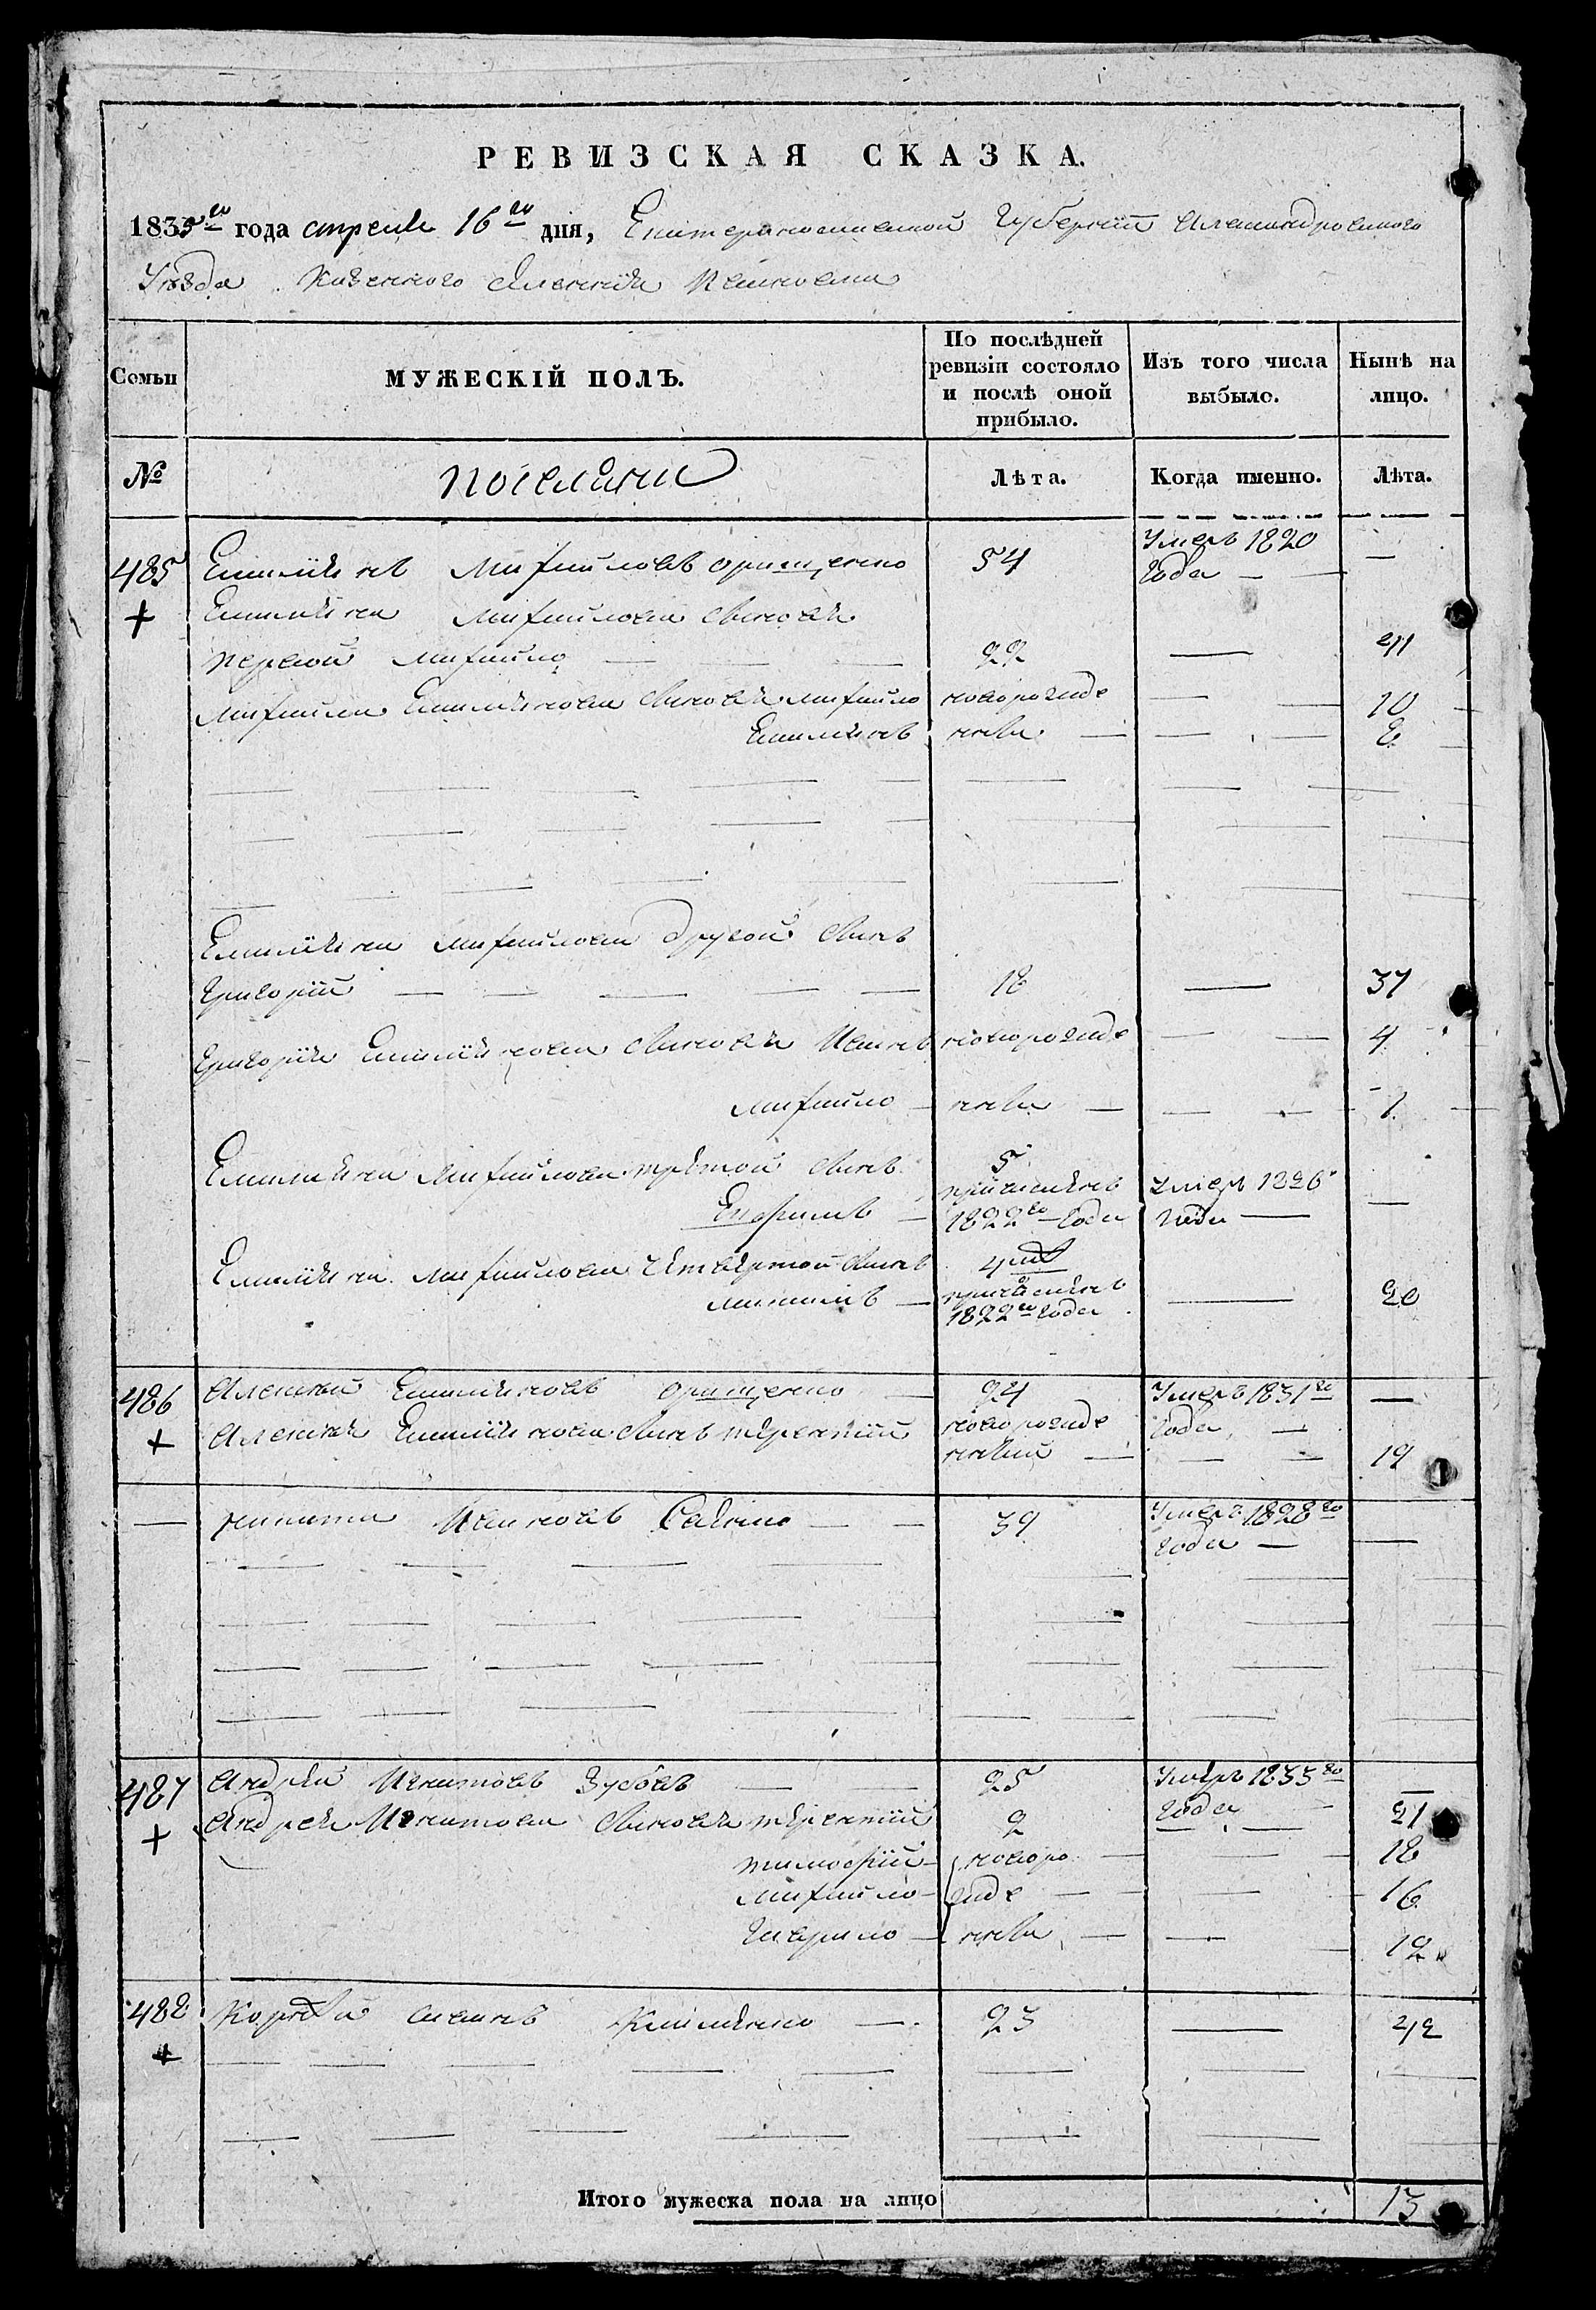 РЕВИЗСКАЯ СКАЗКА.
1835го года апреля 16го дня, Екатеринославской Губернии Александровского
Уѣзда Казенного Селения
Семьи
МУЖЕСКІЙ ПОЛЪ.
По послѣдней ревизіи состояло и послѣ оной прибыло.
Изъ того числа выбыло.
Нынѣ на лицо.
№
поселяне
Лѣта.
Когда именно.
Лѣта.
485 Емилианъ Михайловъ Орищенко 54 Умеръ 1820 года —
+ Емилиана Михайлова Сыновья
первой Михайло — 22 — 41
Михайла Емилианова Сыновья Михайло новорожде — 10
Емилианъ нные — — 8
Емилиана Михайлова другой Сынъ
Григорий — 18 — 37
Григория Емилианова Сыновья Иванъ новорожде — 4
Михайло — нные — — 1
Емилиана Михайлова третой Сынъ 5
Ефримъ — причисленъ 1822го года Умеръ 1826 года —
Емилиана Михайлова четвертой Сынъ
— причисленъ 1822го года — 20
486 Алексей Емилиановъ Орищенко — 24 Умеръ 1831го года —
+ Алексея Емилианова Сынъ Терентий новорожде
нный — — 19
— Никита Ивановъ — 39 Умеръ 1828го года —
487 Андрей Игнатовъ Зубовъ — 25 Умеръ 1835го года —
+ Андрея Игнатова Сыновья Терентий 2 — 21
Тимофий — новоро — 18
Михайло — жде — 16
Гаврило — нные — 12
488 Корней 23 — 42
+
Итого мужеска пола на лицо 13